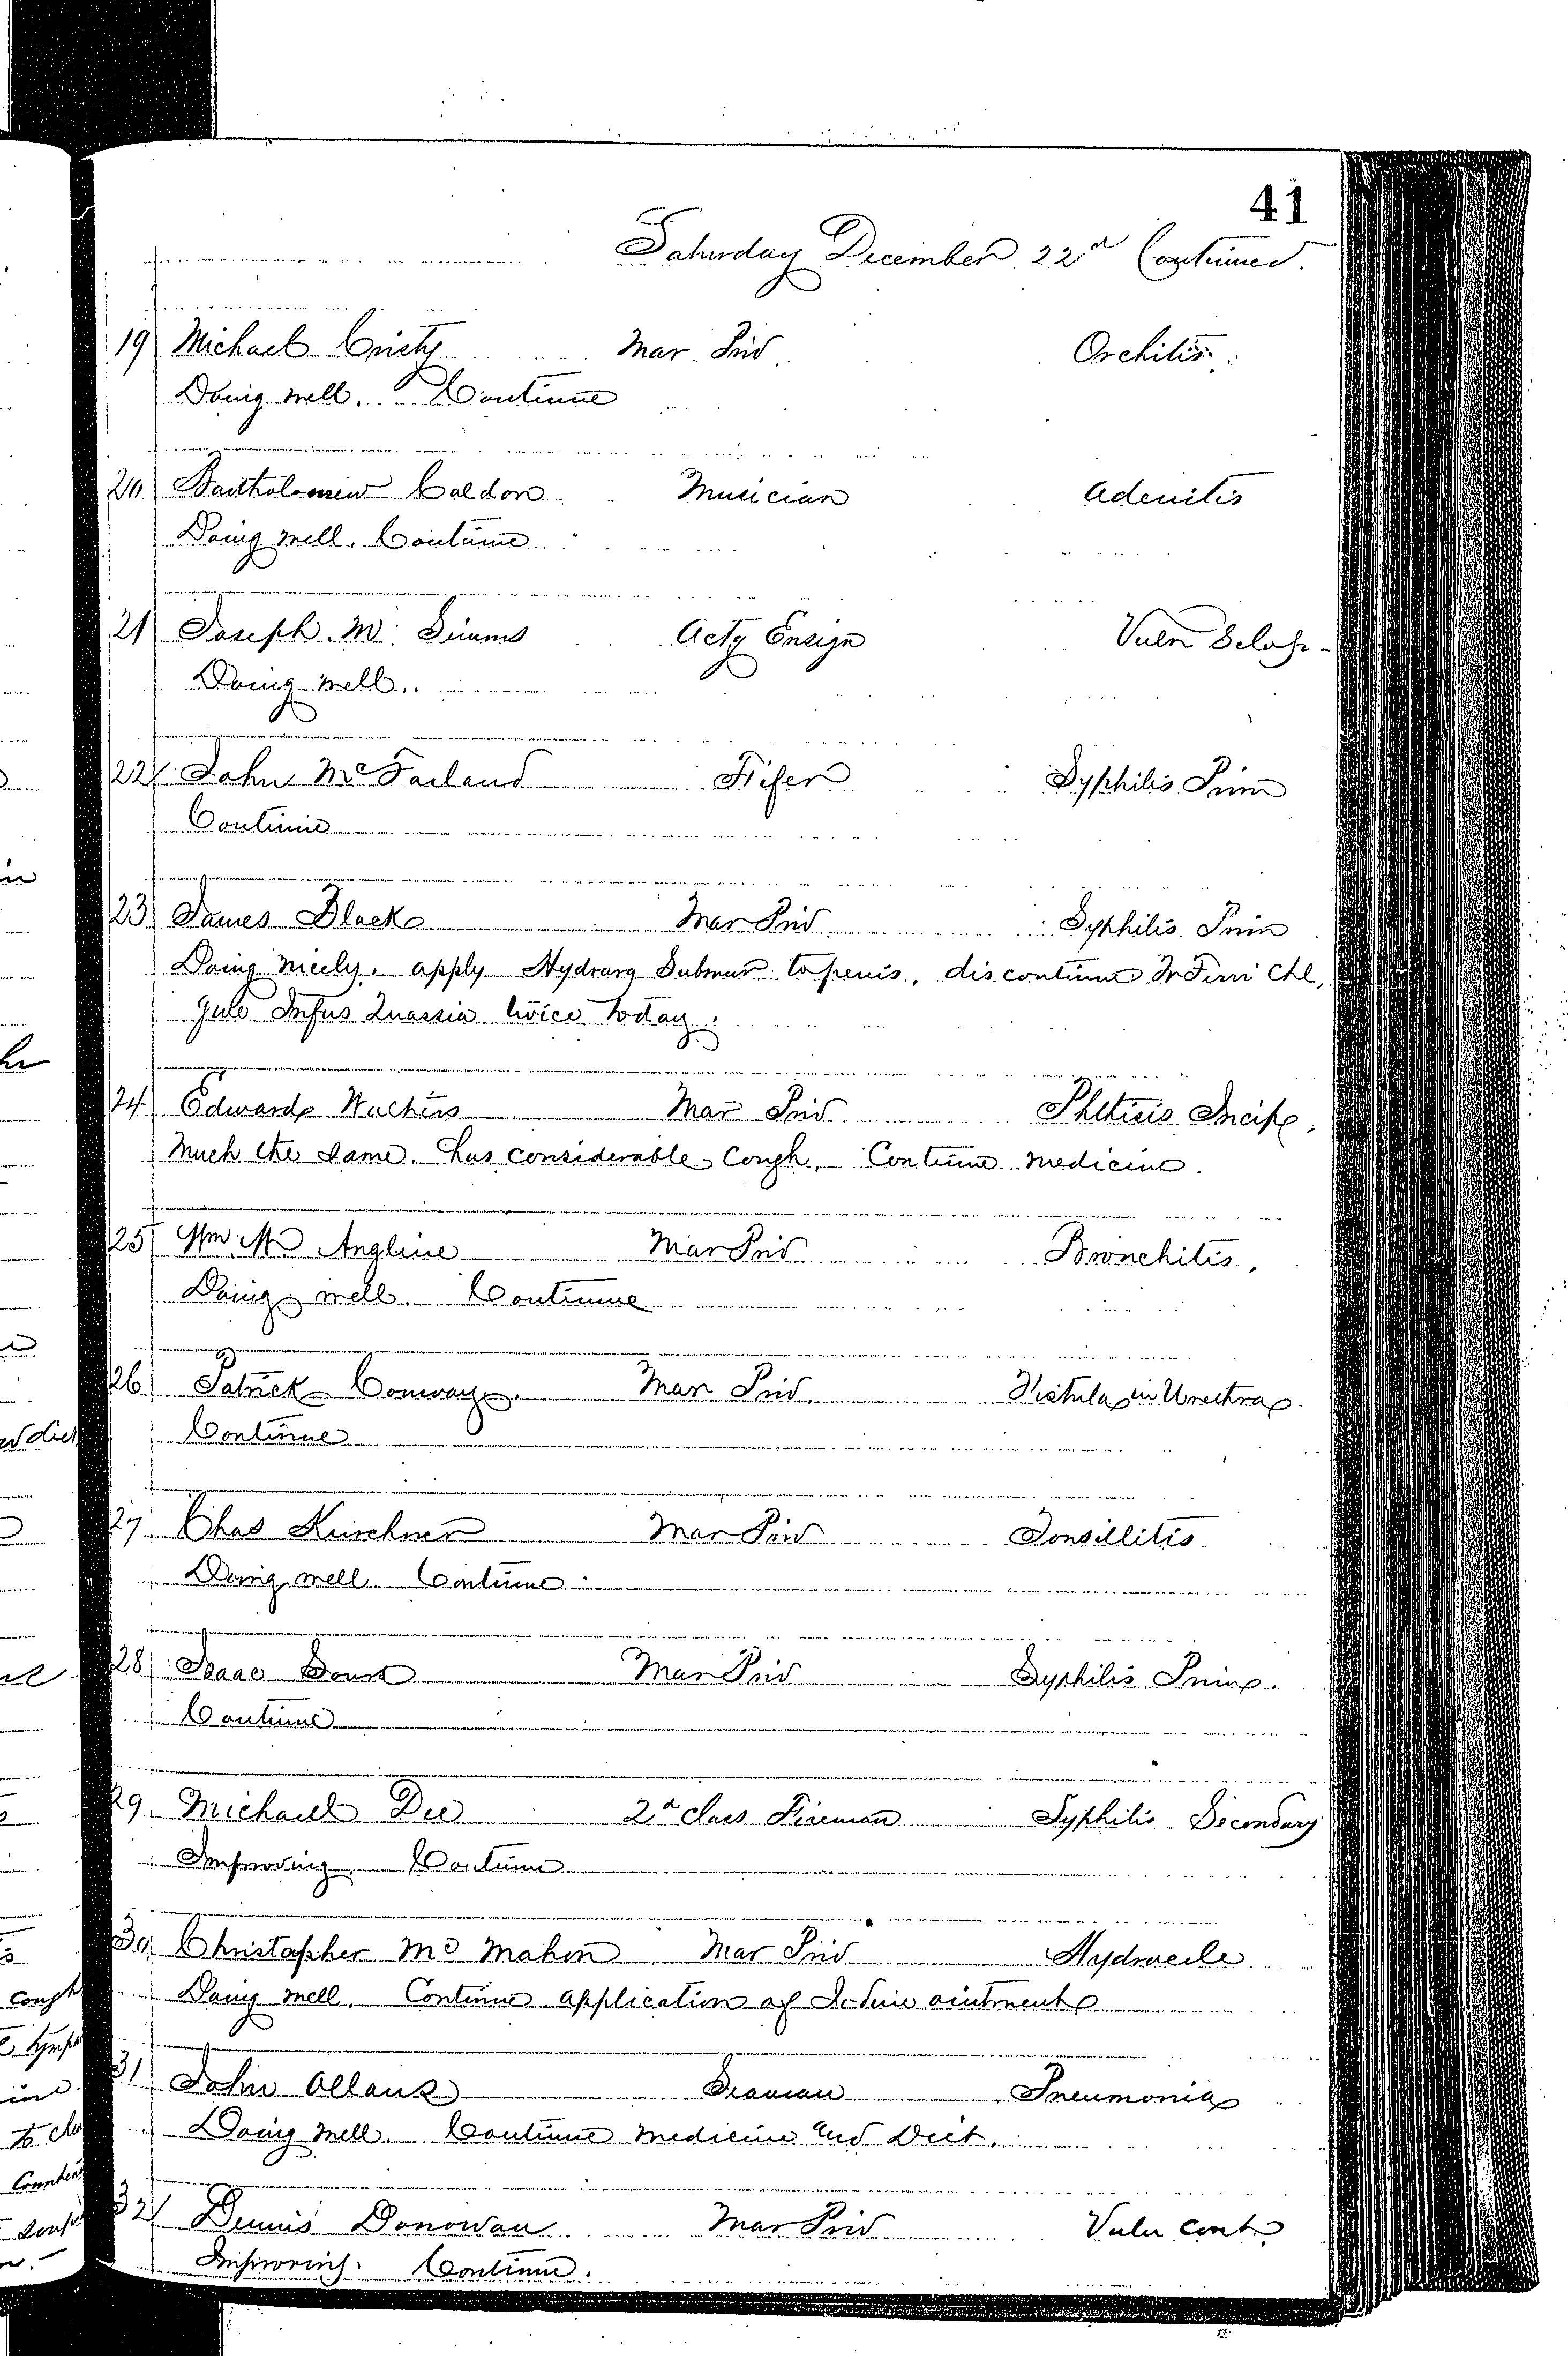 41
Saturday December 22d Continued.
19 Michael Cristy Mar Priv Orchitis
Doing well. Continue
20 Bartholomew Caldon Musician Adenitis
Doing well. Continue
21 Joseph M. Simms Actg Ensign Vuln Sclop.
Doing well.
22 John McFarland Fifer Syphilis Prim
Continue
23 James Black Mar Priv Syphilis Prim
Doing nicely. apply Hydrarg Submur to penis, discontinue Tr Ferri Chl,
Give Infus Quassia twice today.
24 Edward Mar Priv Phthisis Incip.
Much the same. has considerable Cough. Continue medicine.
25 Wm H Angline Mar Priv Bronchitis.
Doing well. Continue
26 Patrick Conway. Mar Priv. Fistula in Urethra.
Continue
27 Chas Kirchner Mar Priv Tonsillitis
Doing well. Continue
28 Isaac Mar Priv Syphilis Prim.
Continue
29. Michael Dee 2d Class Fireman Syphilis Secondary
Improving. Continue
30 Christopher Mc Mahon Mar Priv Hydrocele
Doing well. Continue application of Iodine ointment
31 John Seaman Pneumonia
Doing well. Continue medicine and Diet.
32 Dennis Donovan Mar Priv Vuln Cont.
Improving. Continue.